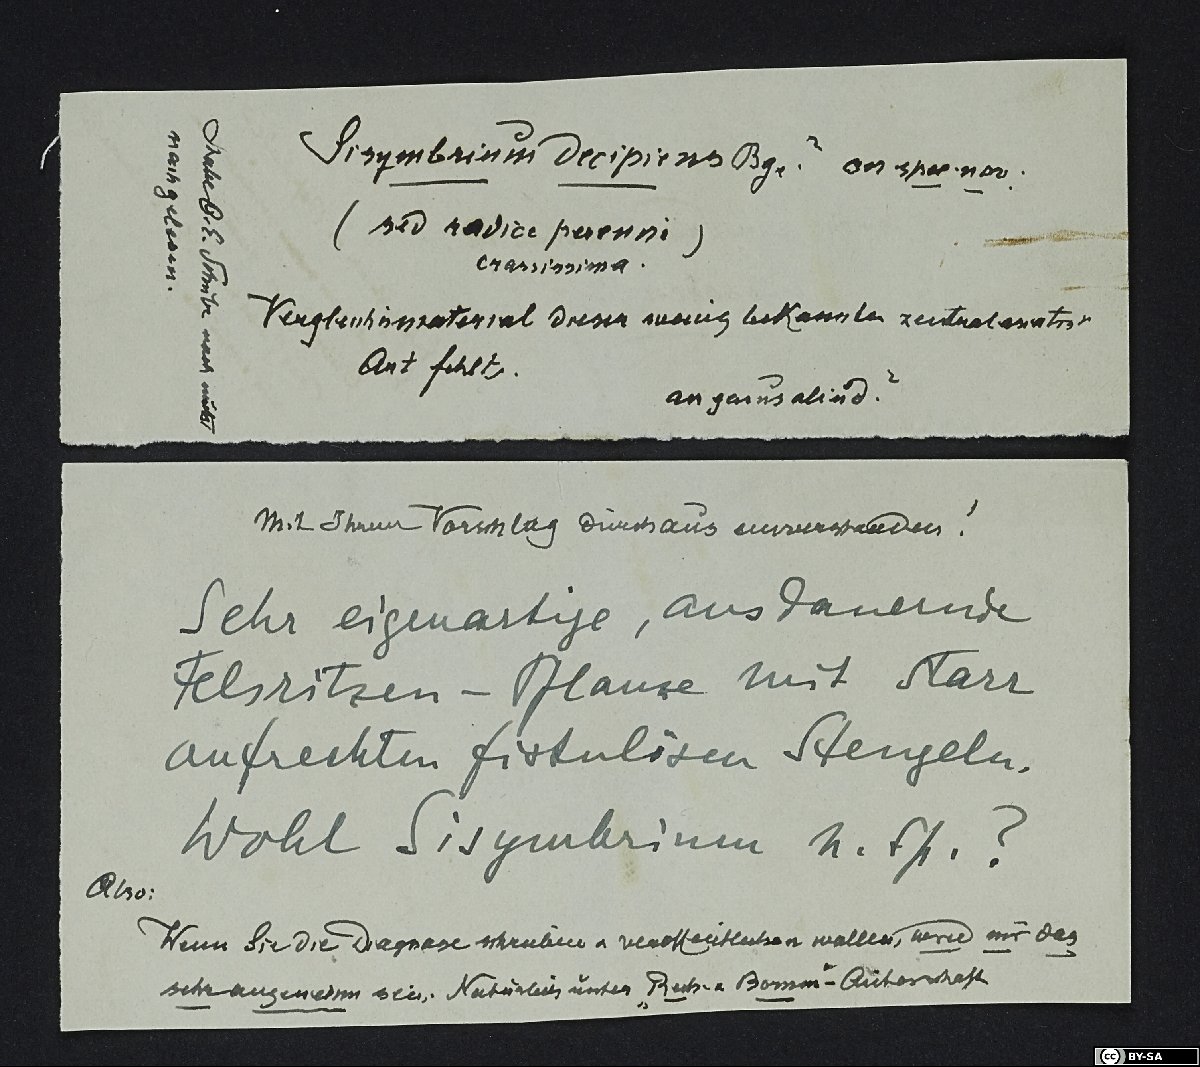 Sisymbrium Decipiens Bge.? an spec. nov.
(sed radice perenni)
crassissima.
Vergleichsmaterial dieser wenig bekannten zentralasiat.
Art fehlt.
an genus alind.?
Habe O. E. Schulz noch nicht
nachgelesen.
Mit Ihrem Vorschlag durchaus einverstanden!
Sehr eigenartige, ausdauernde
Felsritzen-Pflanze mit starr
aufrechten fistulösen Stengeln.
Wohl Sisymbrium n. sp.?
Also:
Wenn Sie die Diagnose schreiben u veröffentlichen wollen, wird mir das
sehr angenehm sein. Natürlich unter „Rech. u Bornm“-Autorschaft
BY-SA